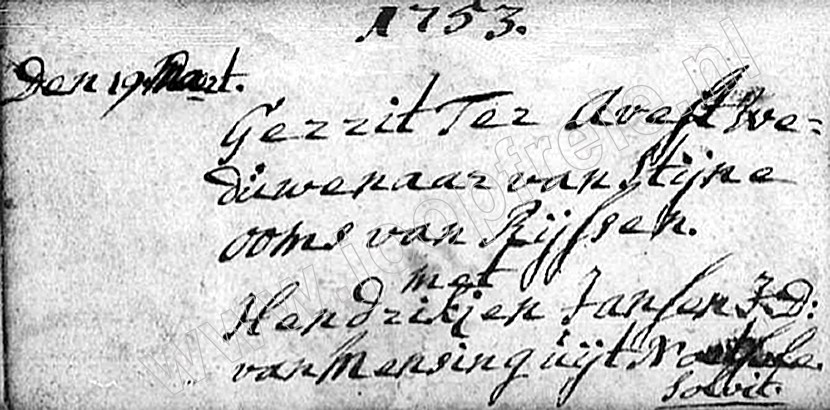 1753.
Den 19 Maert.
Gerrit Ter Avest we=
duwenaar van Stijne
ooms van Rijssen.
met
Hendrikjen Jansen J:D:
van Mensing uijt
solvit.